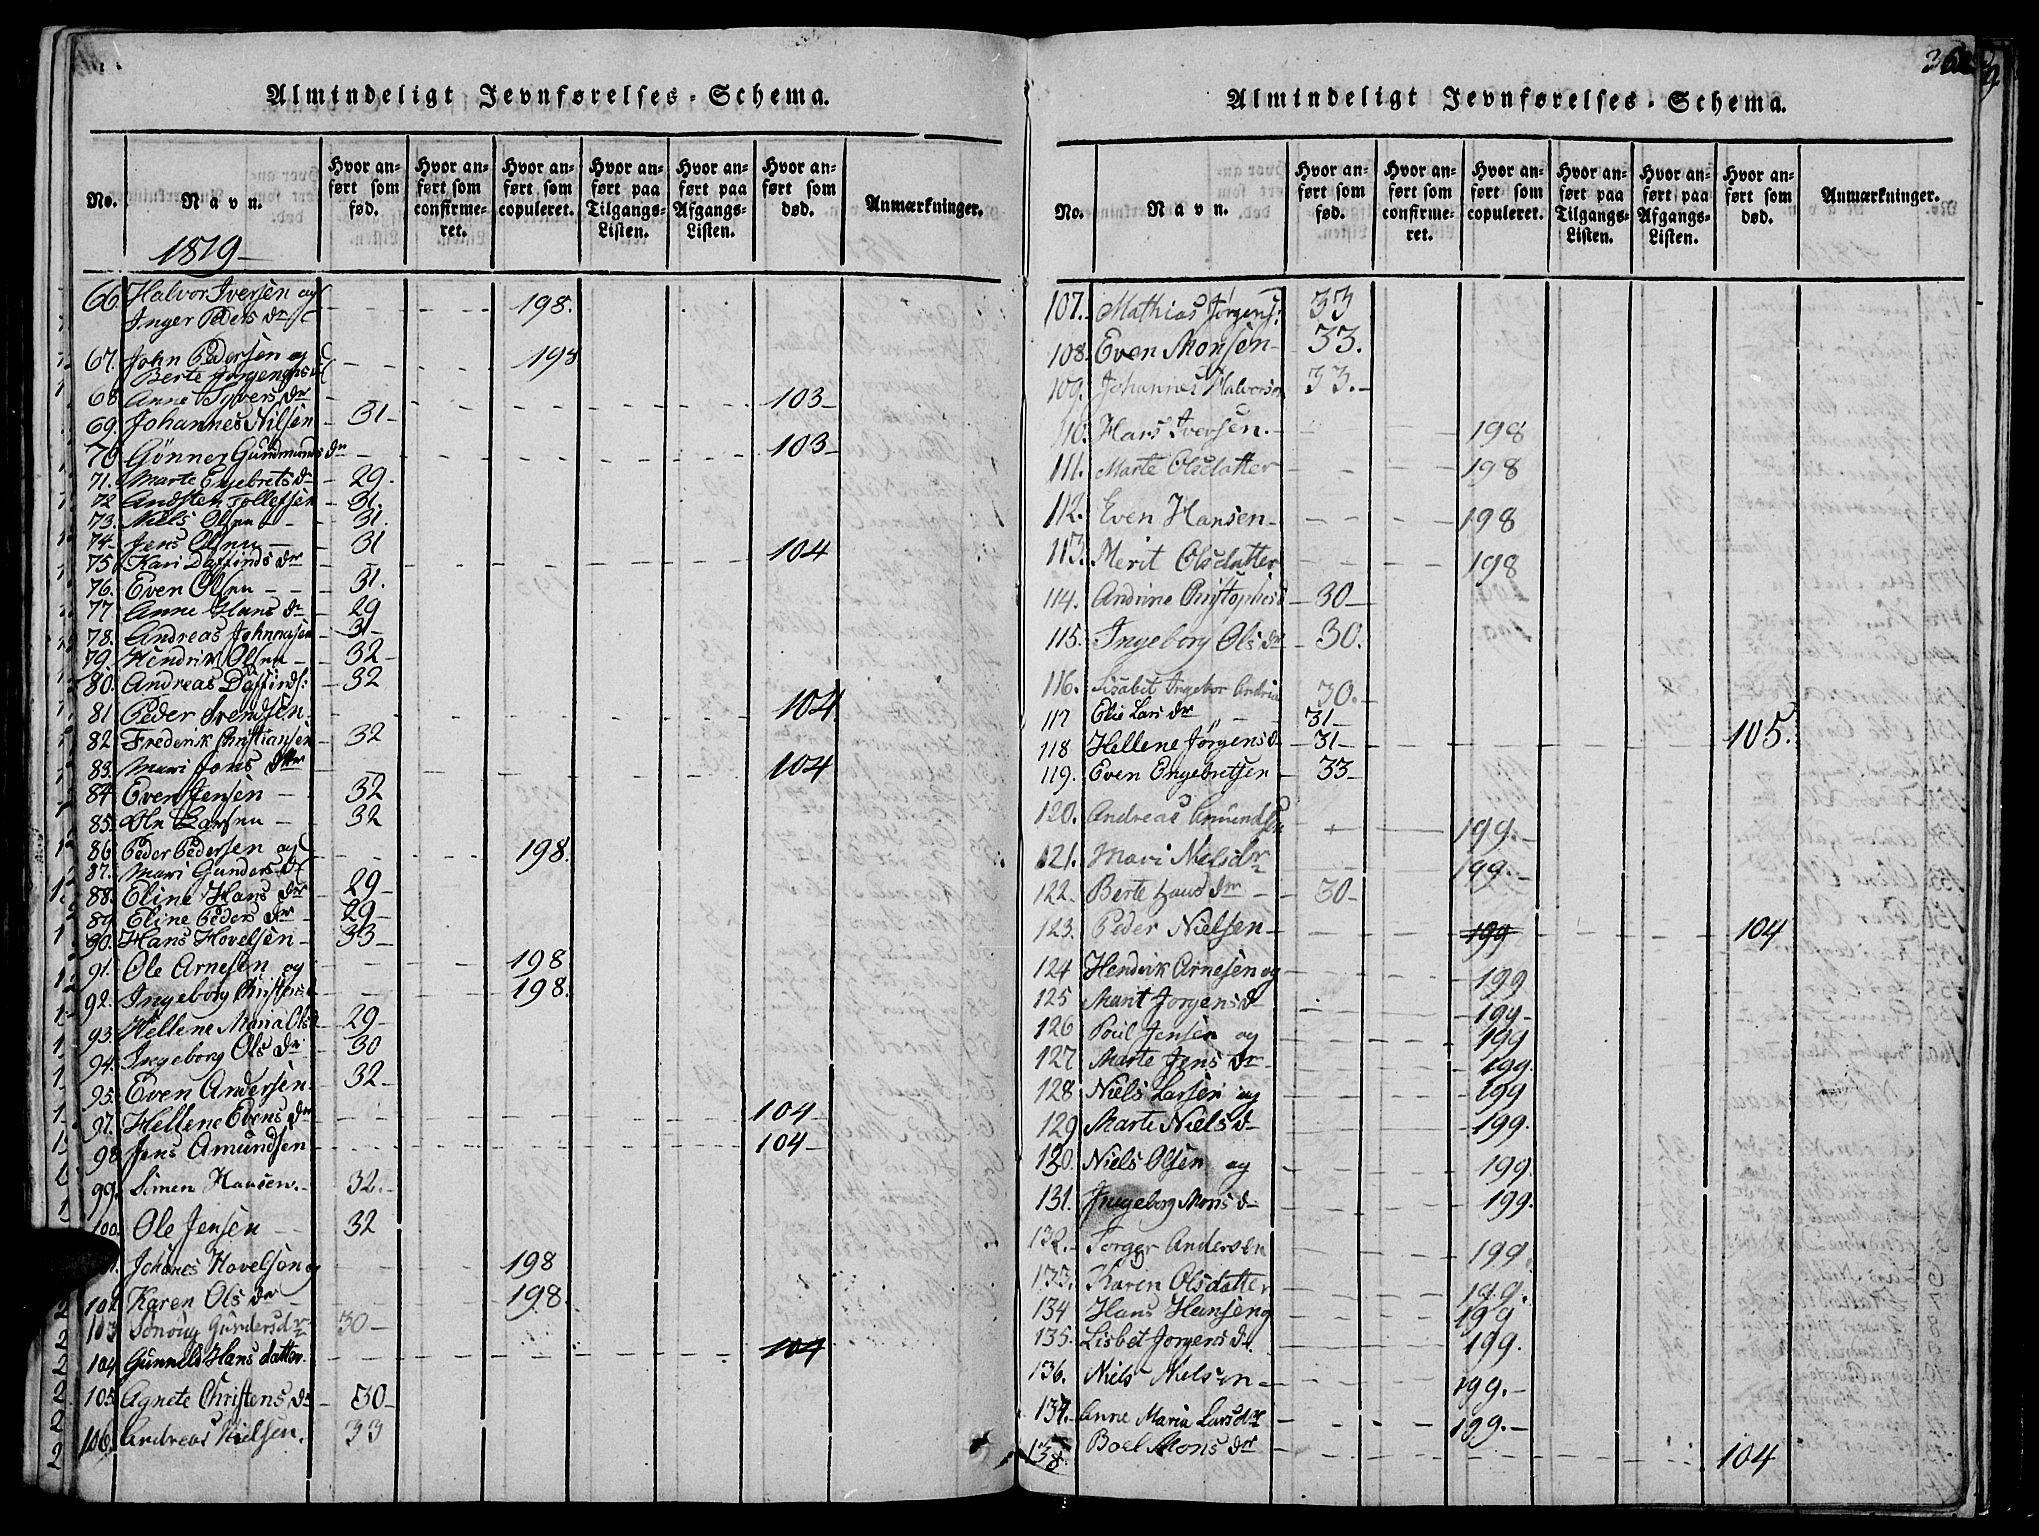 Almindeligt Jevnførelses-Schema.
No. Navn. Hvor anført som fød. Hvor anført som confirmeret. Hvor anført som copuleret. Hvor anført paa Tilgangs-Listen. Hvor anført paa Afgangs-Listen. Hvor anført som død. Anmærkninger.
1819
66. Halvor Iversen og
Inger Peders dr 198.
67. John Pedersen og 198
Berte
68 Anne Syvers dr 103
69. Johannes Nilsen 31
70 Gönner Gundmunds dr 103
71. Marte Engebrets dr 29.
72 Andsten Tollefsen 31.
73. Niels Olsen 31.
74 Jens Olsen 31
75 Kari Daffinds dr 104
76. Even Olsen 31.
77 Anne Hans dr 29
78. Andreas Johnnesen 31
79. Hendrik Olsen 32
80. Andreas Daffinds: 32
81 Peder Svendsen 104
82 Frederik Christiansen 32
83. Mari Jons dtr 104
84 Even Jensen 32
85. Ole Larsen 32
86 Peder Pedersen og 198.
87. Mari Gunders d
88. Eline Hans dr 29
89 Eline Peders dr 29
90. Hans Hovelsen 33
91. Ole Arnesen og 198
92. Ingeborg Christens d 198.
93. Hellene Maria Ols d 29
94. Ingeborg Ols dr 30
95. Even Andersen 32
97. Hellene Evens dr 104
98 Jens Amundsen 104
99. Simen Hansen 32.
100. Ole Jensen 32
Johanes Hovelsen og 198
102. Karen Ols dr 198.
103 Gundersdr 30
104 Gunneld Hans datter 104
105. Agnete Christens dr 30
106. Andreas Nielsen. 33
Almindeligt Jevnførelses-Schema.
No. Navn. Hvor anført som fød. Hvor anført som confirmeret. Hvor anført som copuleret. Hvor anført paa Tilgangs-Listen. Hvor anført paa Afgangs-Listen. Hvor anført som død. Anmærkninger.
107. Mathias Jörgens: 33
108. Even Monsen 33.
109. Johannes Halvorsen 33.
110. Hans Iversen. 198
111. Marte Olsdatter 198
112. Even Hansen 198
113. Merit Olsdatter 198
114. Andrine Christophers d 30
115. Ingeborg Ols dr 30.
116. Lisabet Ingebor 30.
117 Elie Lars dr 31
118 Hellene Jörgens d 31 105.
119. Even Engebretsen 33
120. Andreas Amundsen 199.
121. Mari Nielsdr 199.
122. Berte Hans dr 30
123. Peder Nielsen 199 104
124 Hendrik Arnesen og 199
125 Marit Jorgens d 199
126 Poul Jensen og 199
127 Marte Jens dr 199.
128 Niels Larsen og 199
129 Marte Niels d 199.
130. Niels Olsen og 199.
131. Ingeborg Mons d 199.
132. Torger Andersen 199.
133. Karin Olsdatter 199.
134 Hans Hansen og 199
135. Lisbet Jorgens dr 199.
136. Niels Nielsen 199.
137. Anne Maria Larsdr 199.
138. Boel Mons dr 104